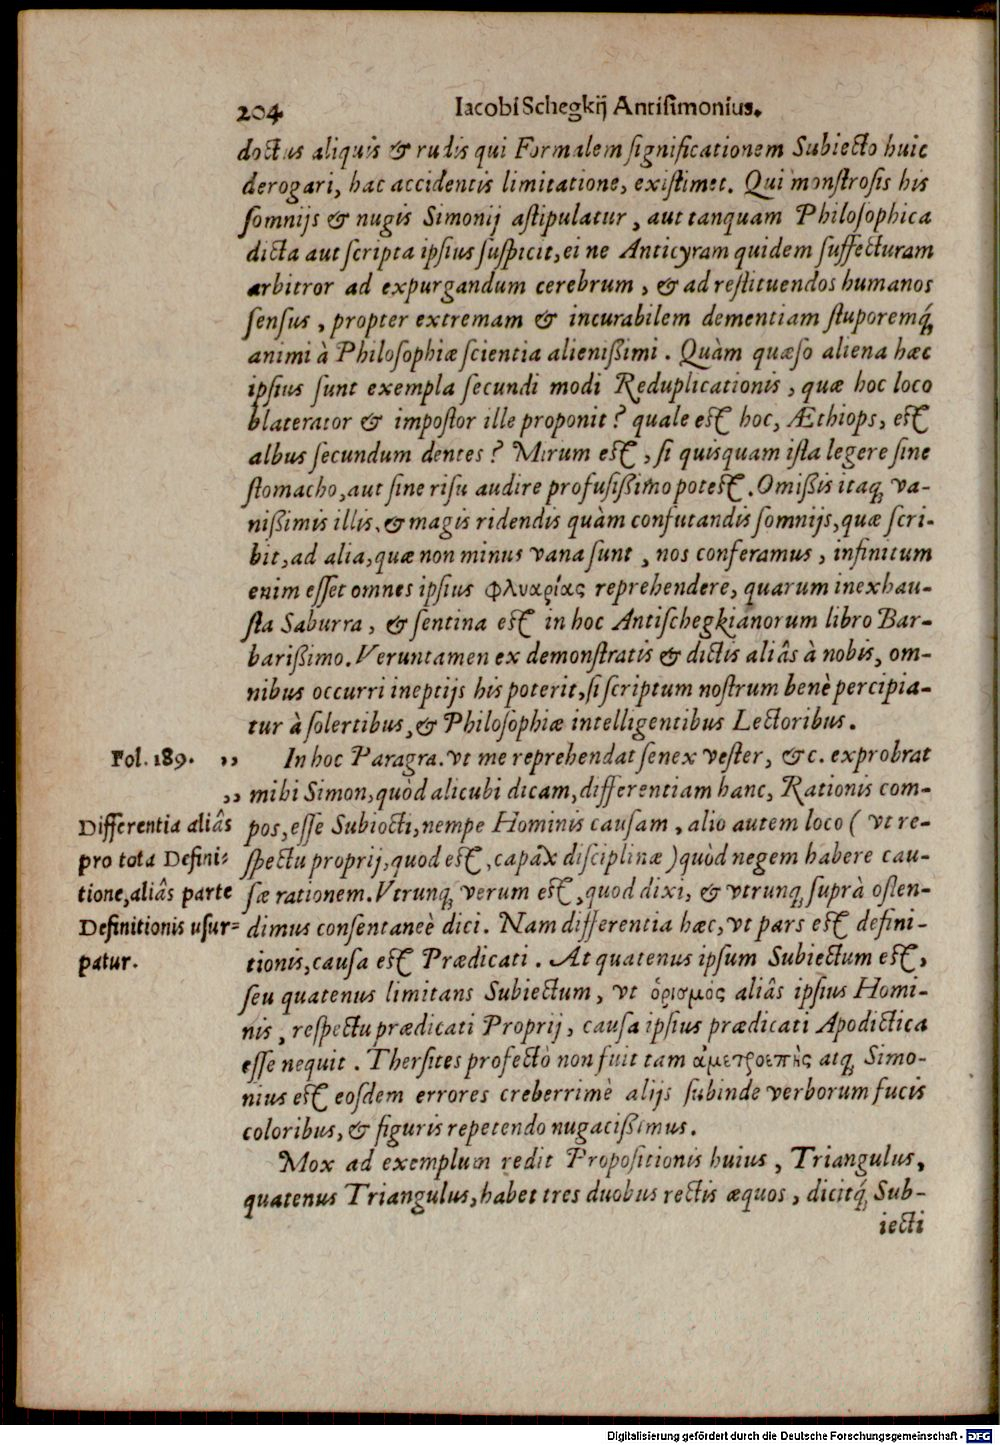 204 Iacobi Schegkij Antisimonius.
doctus aliquis & rudis qui Formalem significationem Subiecto huic
derogari, hac accidentis limitatione, existimet. Qui monstrosis his
somnijs & nugis Simonij astipulatur, aut tanquam Philosophica
dicta aut scripta ipsius suspicit, ei ne Anticyram quidem suffecturam
arbitror ad expurgandum cerebrum, & ad restituendos humanos
sensus, propter extremam & incurabilem dementiam stuporemq́;
animi à Philosophiæ scientia alienißimi. Quàm quæso aliena hæc
ipsius sunt exempla secundi modi Reduplicationis, quæ hoc loco
blaterator & impostor ille proponit? quale est hoc, Æthiops, est
albus secundum dentes? Mirum est, si quisquam ista legere sine
stomacho, aut sine risu audire profusißimo potest. Omißis itaq; va-
nißimis illis, & magis ridendis quàm confutandis somnijs, quæ scri-
bit, ad alia, quæ non minus vana sunt, nos conferamus, infinitum
enim esset omnes ipsius φλυαρίας reprehendere, quarum inexhau-
sta Saburra, & sentina est in hoc Antischegkianorum libro Bar-
barißimo. Veruntamen ex demonstratis & dictis aliâs à nobis, om-
nibus occurri ineptijs his poterit, si scriptum nostrum benè percipia-
tur à solertibus, & Philosophiæ intelligentibus Lectoribus.
Fol. 189. ,, In hoc Paragra. vt me reprehendat senex vester, &c. exprobrat
,, mihi Simon, quòd alicubi dicam, differentiam hanc, Rationis com-
pos, esse Subiocti, nempe Hominis causam, alio autem loco (vt re-
spectu proprij, quod est, capax disciplinæ) quòd negem habere cau-
sæ rationem. Vtrunq; verum est, quod dixi, & vtrunq; suprà osten-
dimus consentaneè dici. Nam differentia hæc, vt pars est defini-
tionis, causa est Prædicati. At quatenus ipsum Subiectum est,
seu quatenus limitans Subiectum, vt ὁρισμός aliâs ipsius Homi-
nis, respectu prædicati Proprij, causa ipsius prædicati Apodictica
esse nequit. Thersites profectò non fuit tam ἀμετροεπὴς atq; Simo-
nius est eosdem errores creberrimè alijs subinde verborum fucis
coloribus, & figuris repetendo nugacißimus.
Differentia aliâs
pro tota Defini-
tione, aliâs parte
Definitionis usur-
patur.
Mox ad exemplum redit Propositionis huius, Triangulus,
quatenus Triangulus, habet tres duobus rectis æquos, dicitq́; Sub-
iecti
Digitalisierung gefördert durch die Deutsche Forschungsgemeinschaft - DFG